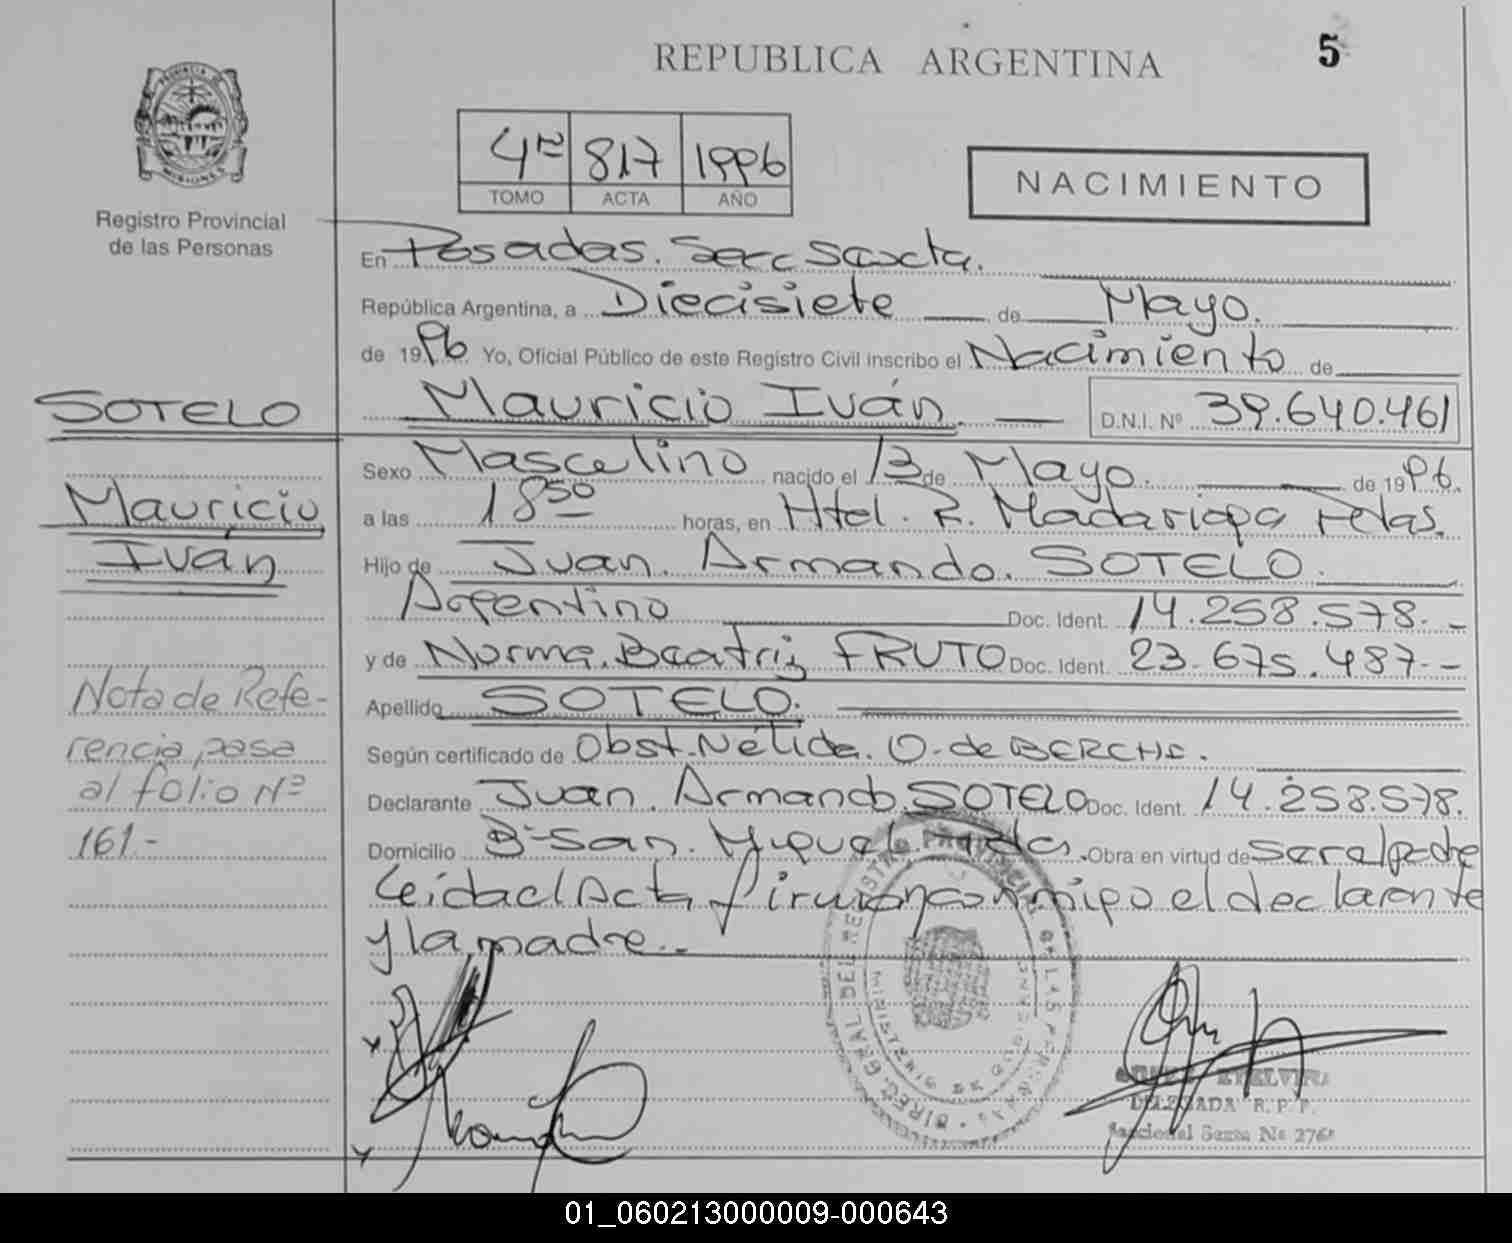 REPUBLICA ARGENTINA
5
4to 817 1996
TOMO ACTA AÑO
NACIMIENTO
MISIONES
Registro Provincial
de las Personas
En Posadas. Secc Sexta.
República Argentina, a Diecisiete de Mayo.
de 1996. Yo, Oficial Público de este Registro Civil inscribo el Nacimiento de
SOTELO
Mauricio Iván. D.N.I. Nº 39.640.461
Sexo Masculino nacido el 13 de Mayo. de 1996.
Mauricio
Iván
a las 18 30 horas, en Htal. R. Madariaga Pdas.
Hijo de Juan. Armando. SOTELO.
Argentino Doc. Ident. 14.258.578.-
y de Norma. Beatriz FRUTO Doc. Ident. 23.675.487.-
Apellido SOTELO.
Nota de Refe-
rencia pasa
al folio Nº
161.-
Según certificado de Obst. Nélida. O. de BERCHE.
Declarante Juan. Armando. SOTELO Doc. Ident. 14.258.578.
Domicilio Bº San. Miguel Pdas. Obra en virtud de Ser el padre
Leida el Acta firman conmigo el declarante
y la madre.-
DIREC. GRAL DEL REGISTRO PROVINCIAL DE LAS PERSONAS
MINISTERIO DE GOBIERNO
ETELVINA
DELEGADA R.P.P.
Seccional Sexta Nº 276
01_060213000009-000643